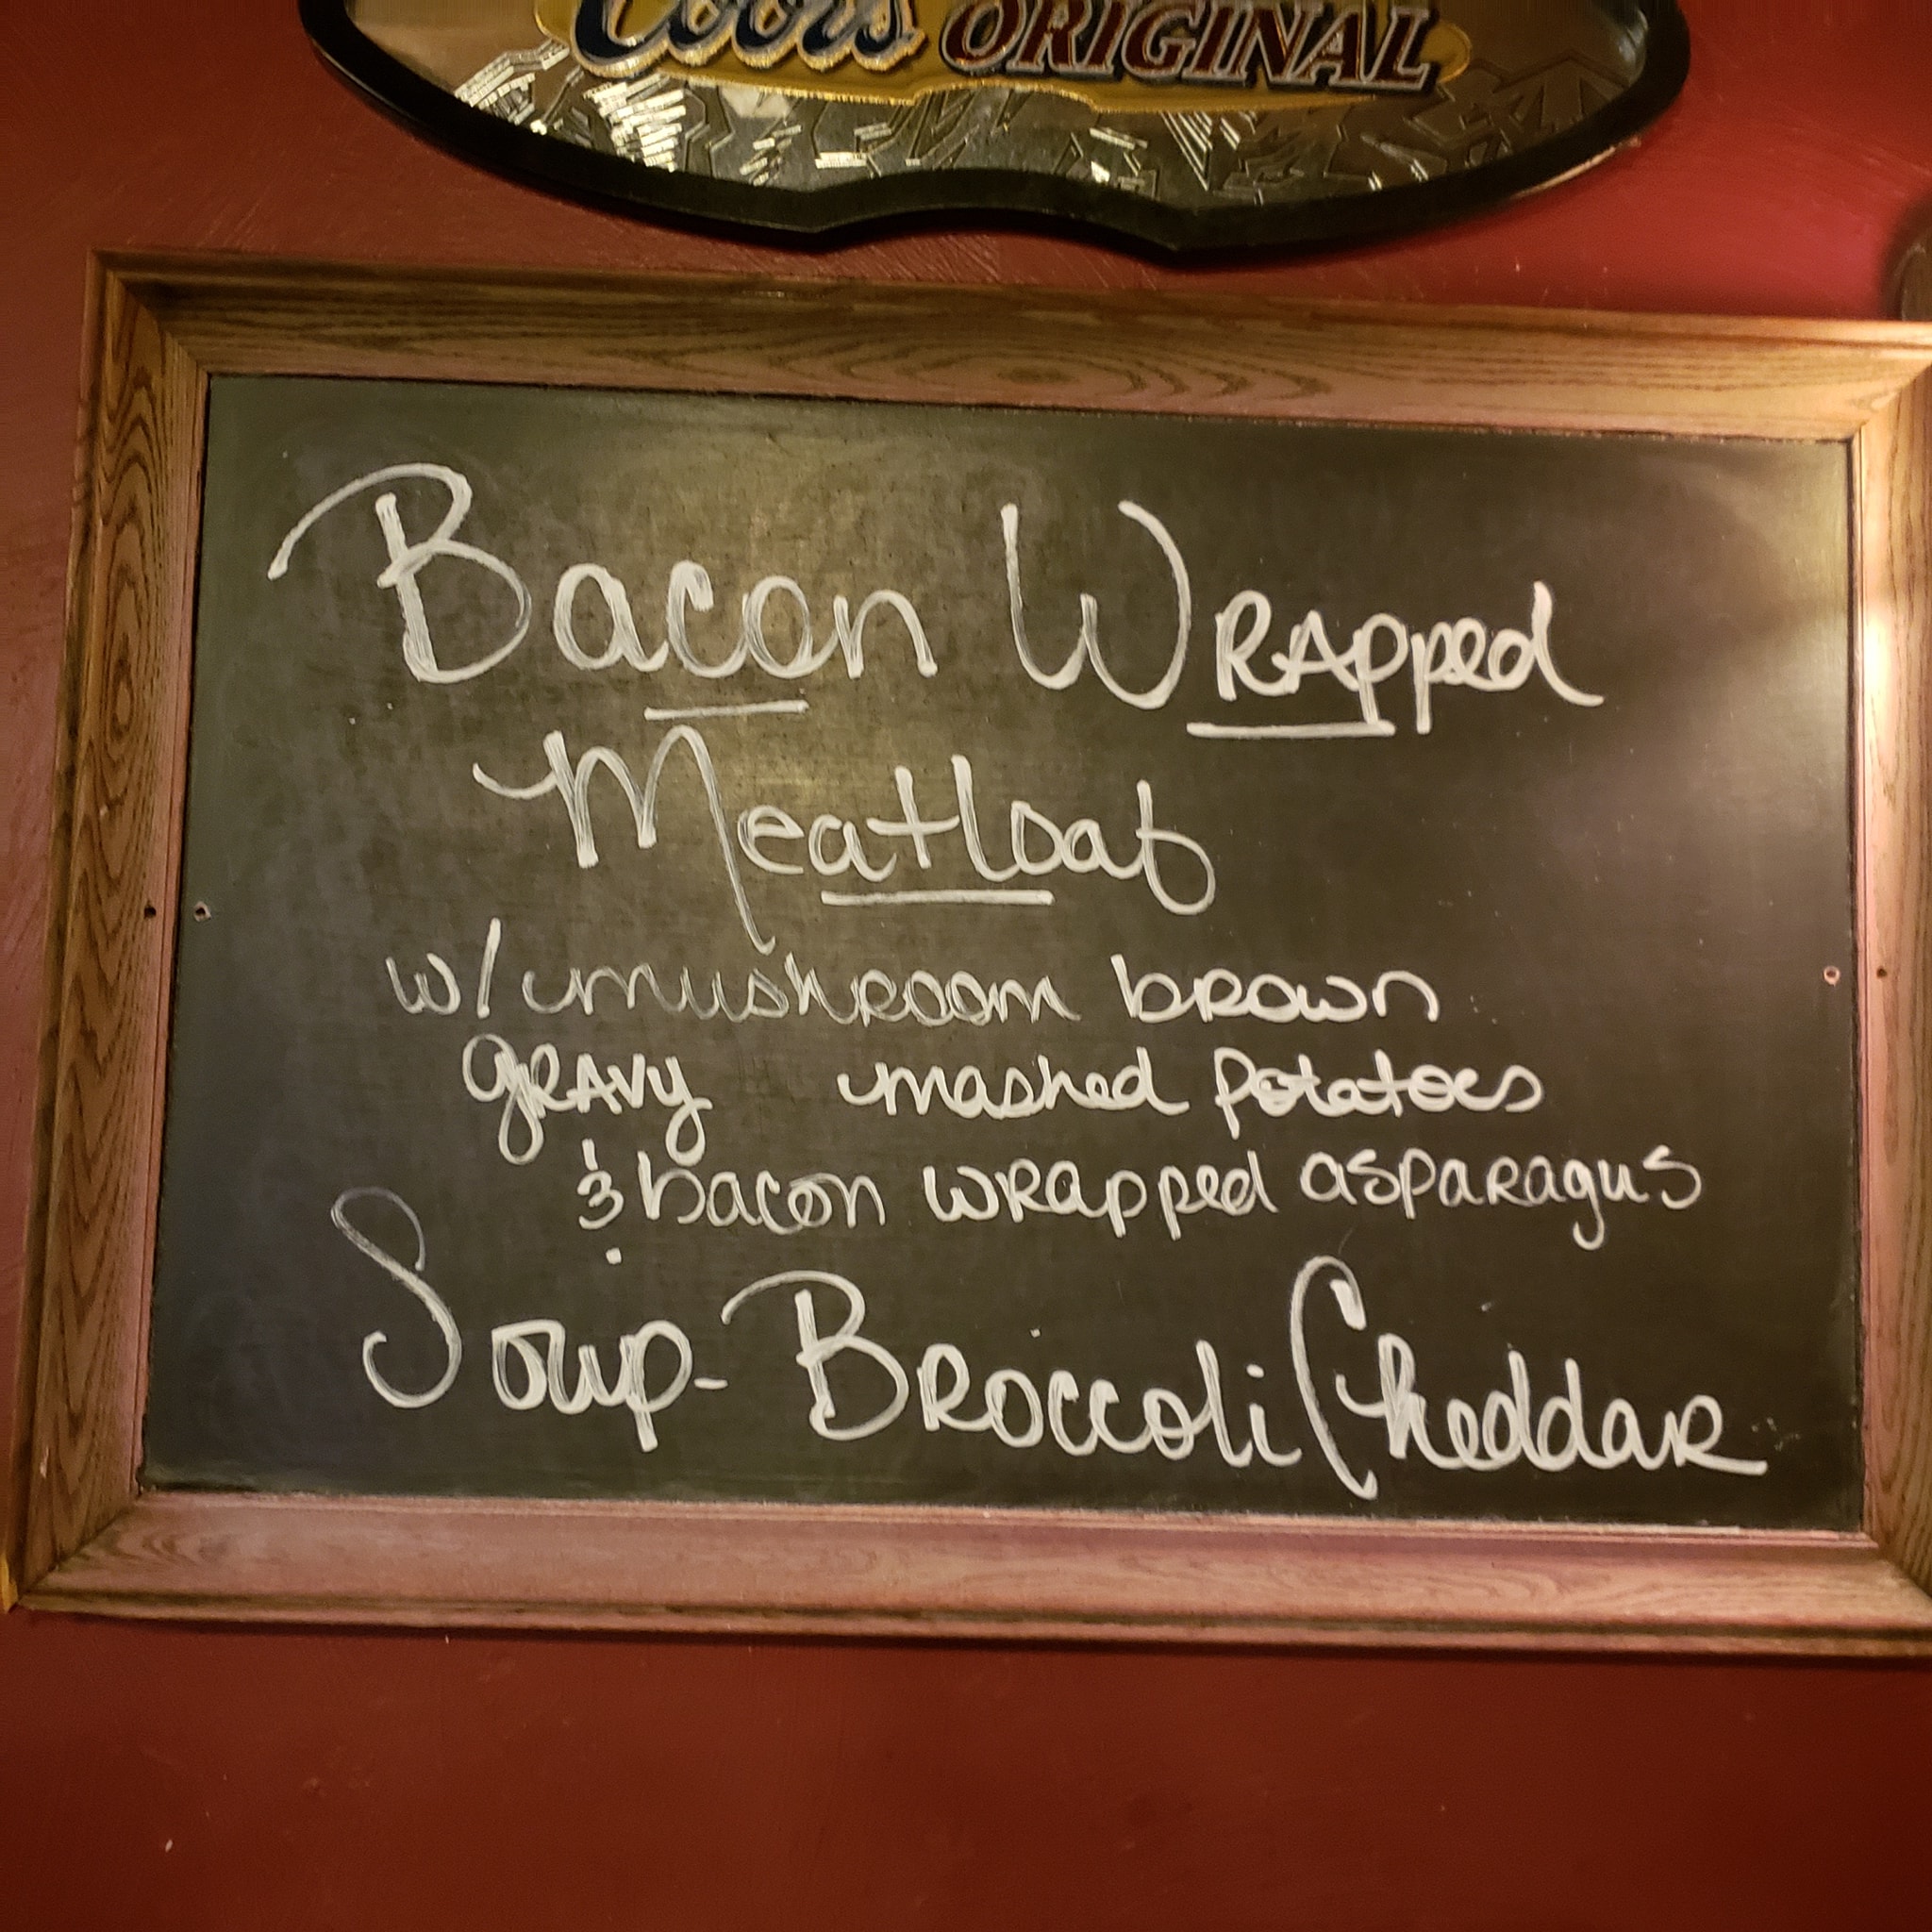 Coors ORIGINAL
Bacon Wrapped
Meatloaf
w/ mushroom brown
gravy mashed potatoes
& bacon wrapped asparagus
Soup - Broccoli Cheddar